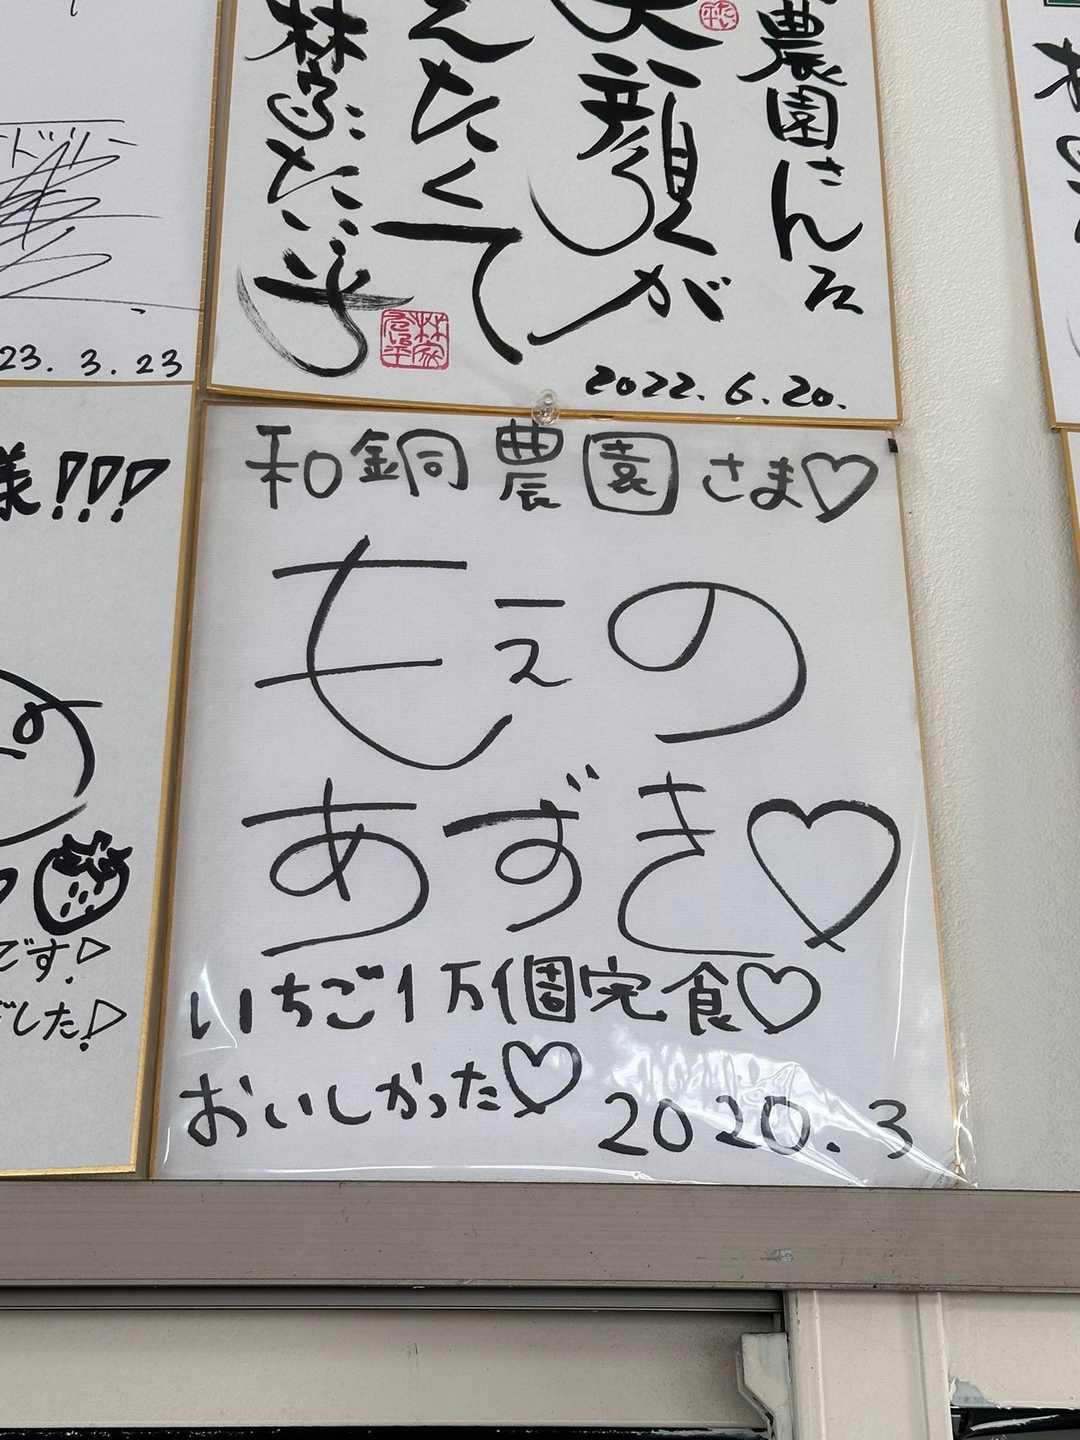 農園さんへ
笑顔が
えたくて
林家たい平
2022.6.20.
23.3.23
様!!!
です!
した!
和銅農園さま♡
もえの
あずき♡
いちご1万個完食♡
おいしかった♡ 2020.3